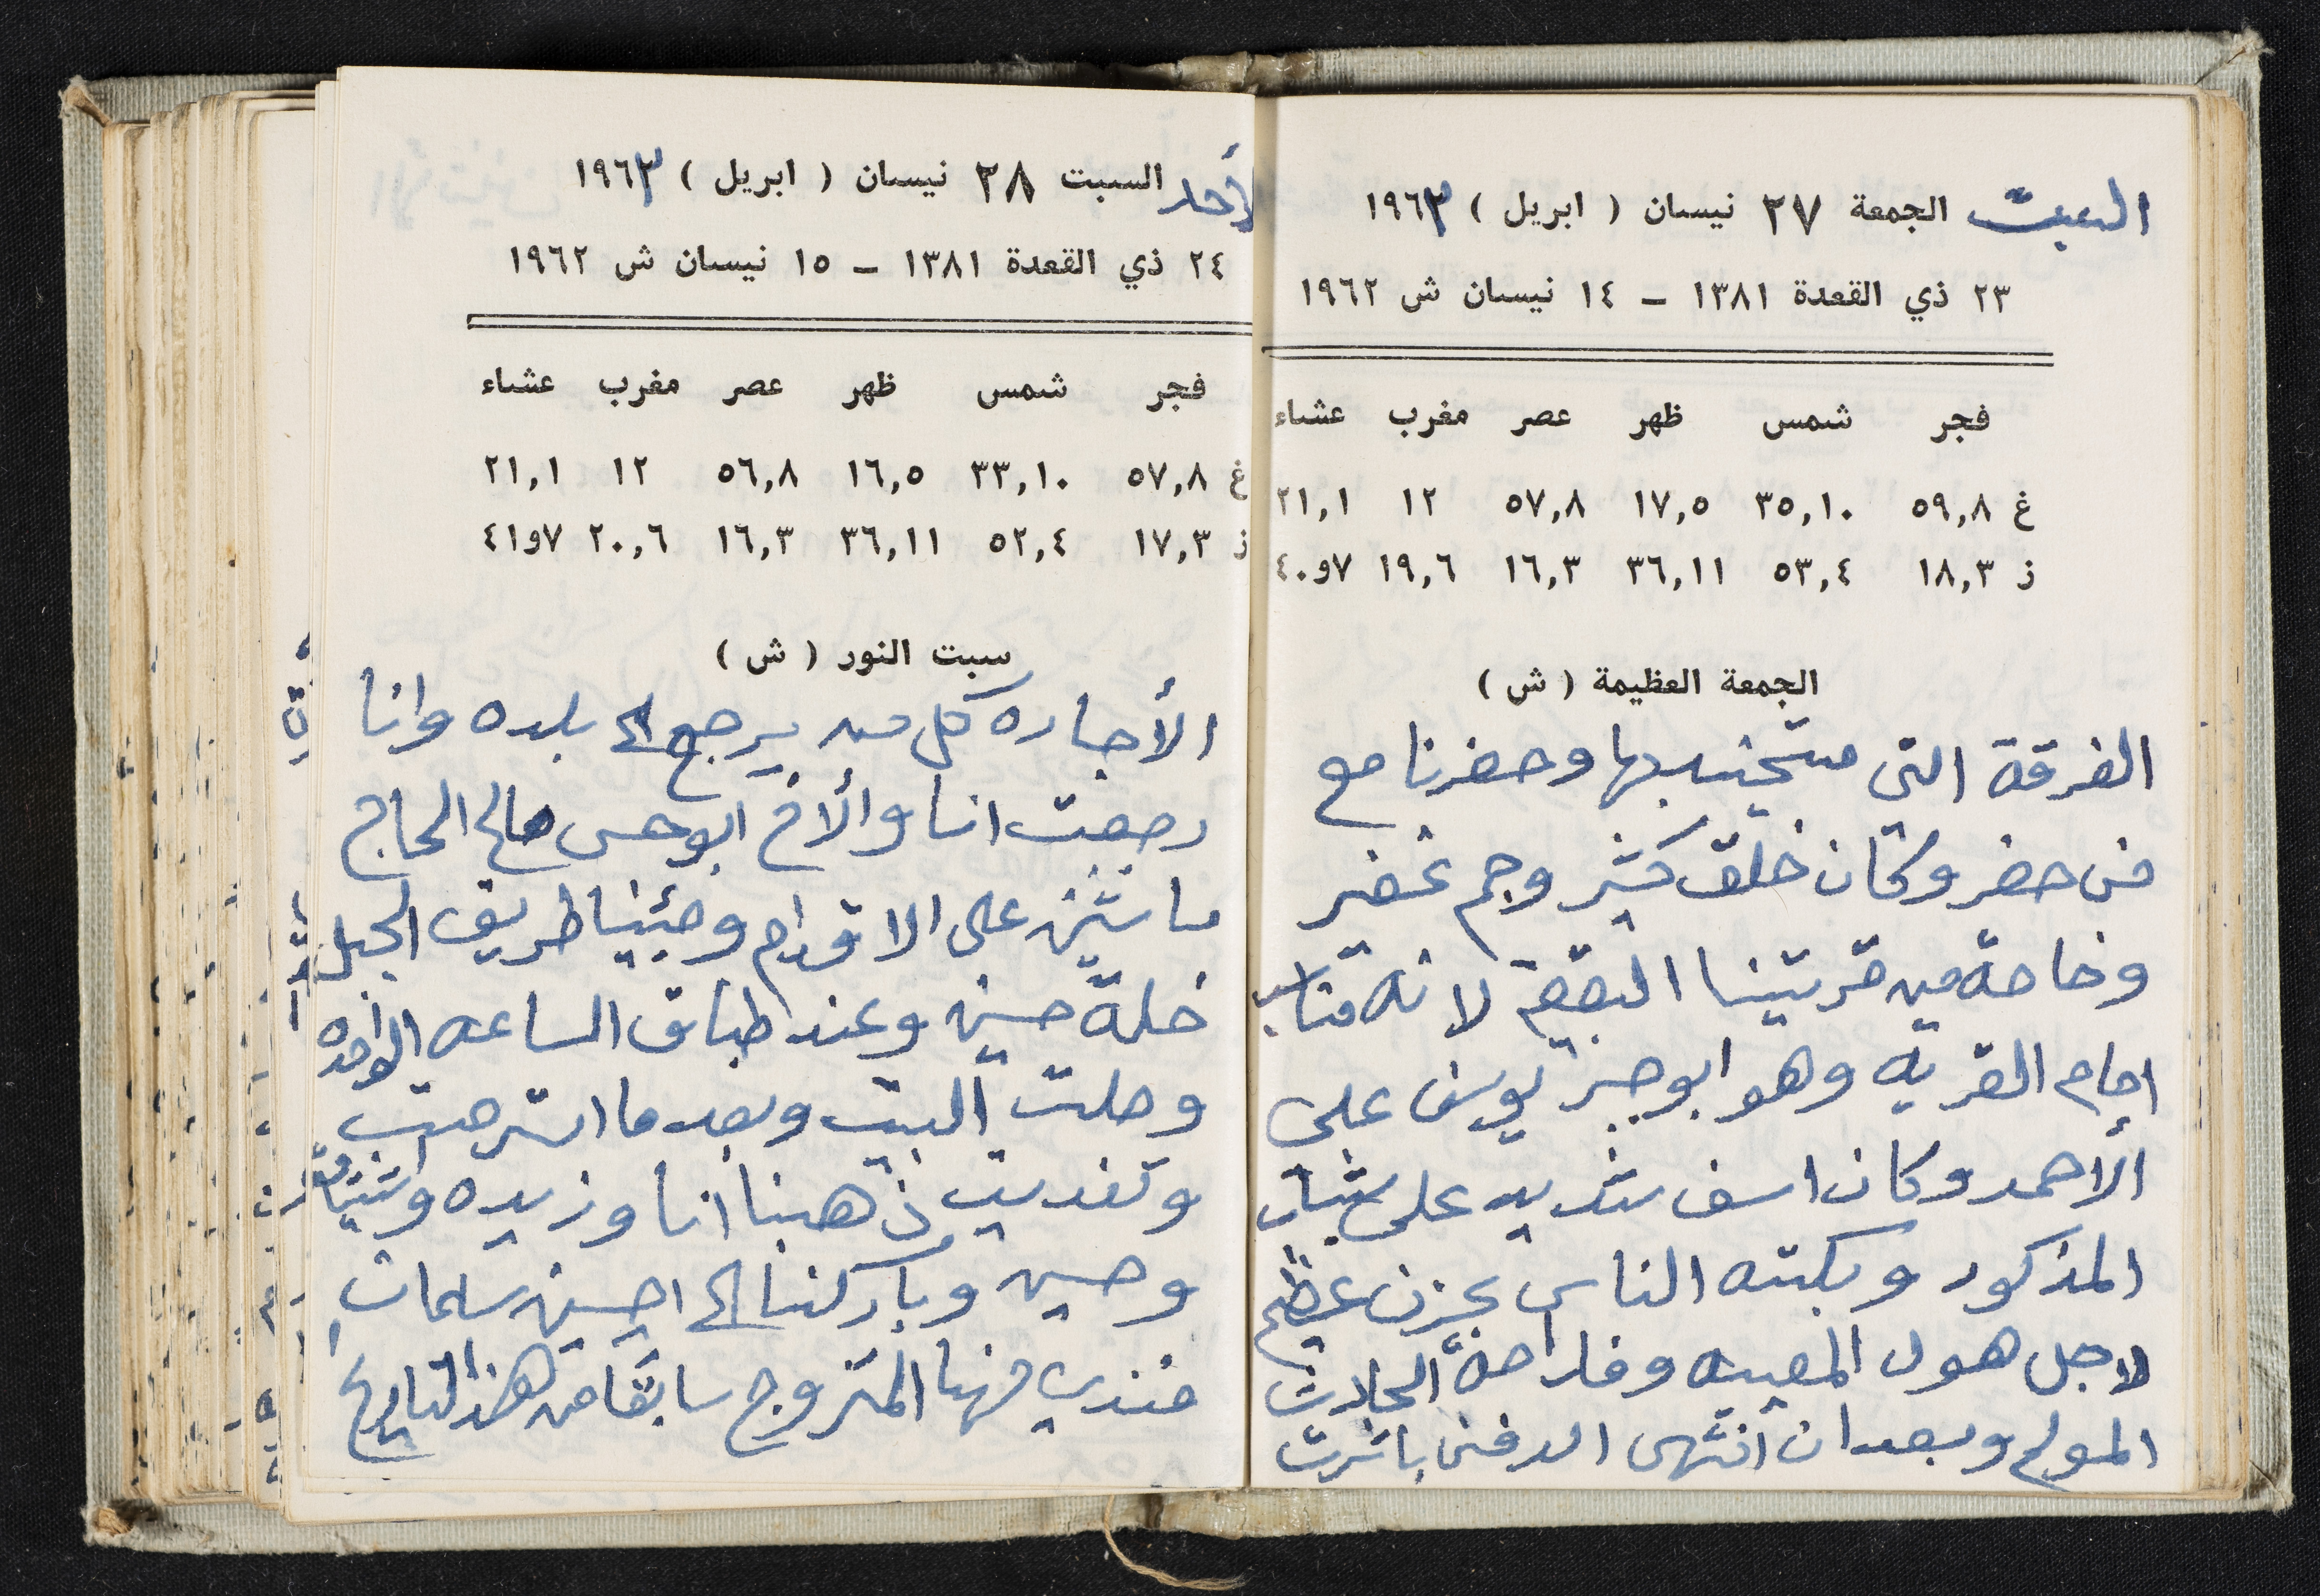 السبت الجمعة ٢٧ نيسان ( ابريل ) ١٩٦٣
٢٣ ذي القعدة ١٣٨١ – ١٤ نيسان ش ١٩٦٢
فجر شمس ظهر عصر مغرب عشاء
غ ٥٩,٨ ٣٥,١٠ ١٧,٥ ٥٧,٨ ١٢ ٢١,١
ز ١٨,٣ ٥٣,٤ ٣٦,١١ ١٦,٣ ١٩,٦ ٧و٤٠
الجمعة العظيمة ( ش )
الفرقة التي بها وحضرنا مع
من حضر وكان خلق كثير وجم غفير
وخاصة من قريتنا البقيعة لانه مناسب
امام القريه وهو ابو جبر يوسف علي
الأحمد وكان اسف شديد على شباب
المذكور وبكته الناس بحزن عظيم
لاجل هول المصيبه وفداحة الحادث
المولم وبعد ان انتهى الدفن باشرت
الأحد السبت ٢٨ نيسان ( ابريل ) ١٩٦٣
٢٤ ذي القعدة ١٣٨١ – ١٥ نيسان ش ١٩٦٢
فجر شمس ظهر عصر مغرب عشاء
غ ٥٧,٨ ٣٣,١٠ ١٦,٥ ٥٦,٨ ١٢ ٢١,١
ز ١٧,٣ ٥٢,٤ ٣٦,١١ ١٦,٣ ٢٠,٦ ٧و٤١
سبت النور ( ش )
الأجاره كل من يرجع الى بلده وانا
رجعت انا والأخ ابو حسن صالح الحاج
ماشين على الاقدام وجئينا طريق الجبل
خلة حسين وعند اطباق الساعه الواحده
وصلت البيت وبعد ما استرحت
وتغديت ذهبنا انا وزيده
وحسين وباركنا الى احسين سلمان
مهنا المتزوج سابقا من هذا التاريخ